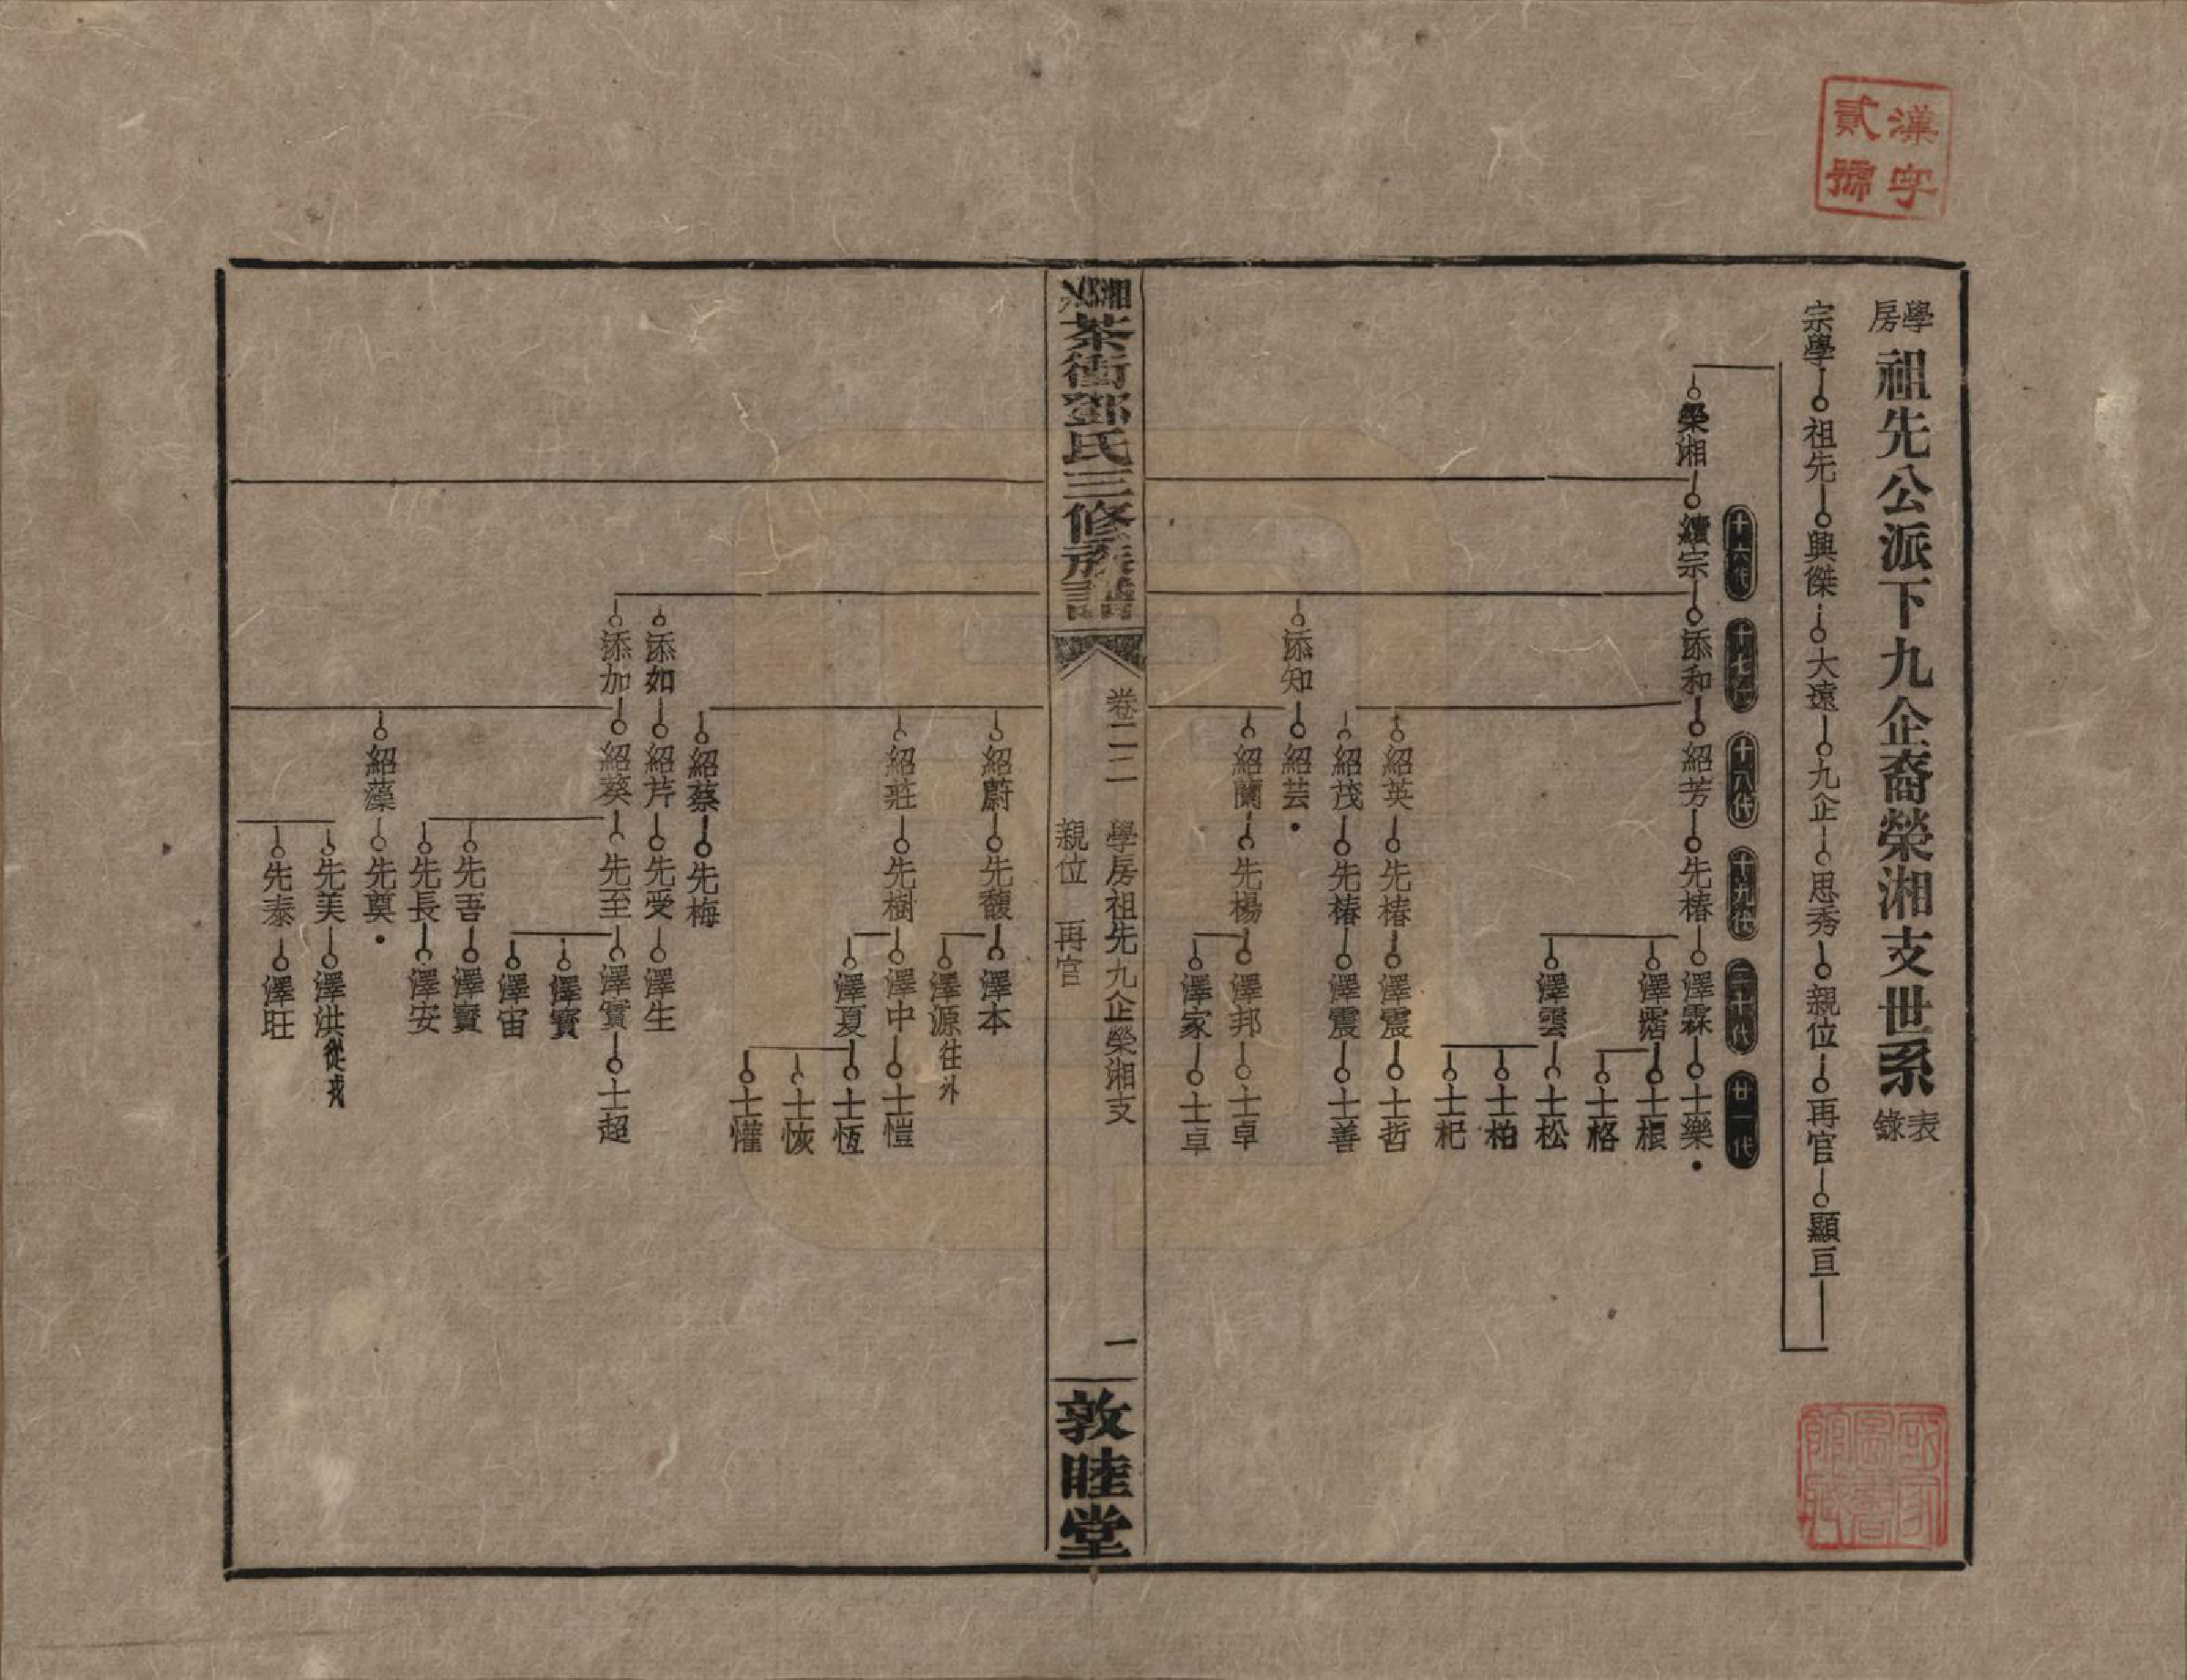 漢字
貳號
學房 祖先公派下九企裔榮湘支世系 表錄
宗學 祖先 興傑 大遠 九企 思秀 親位 再官 顯亘
十六代 十七代 十八代 十九代 二十代 廿一代
榮湘 續宗 添和 紹芳 先椿 澤霖 士樂
澤霑 士根
士格
澤雲 士松
士柏
士杞
紹英 先椿 澤震 士哲
紹茂 先椿 澤震 士善
添知 紹芸
紹蘭 先楊 澤邦 士卓
澤家 士卓
湘鄉 茶衝鄧氏三修族譜
卷二二 學房祖先九企榮湘支
親位 再官
一
敦睦堂
紹蔚 先馥 澤本
澤源 往外
紹莊 先樹 澤中 士愷
澤夏 士恆
士恢
士懽
紹蔡 先梅
添如 紹芹 先受 澤生
添加 紹葵 先至 澤實 士超
澤賓
澤宙
先吾 澤寶
先長 澤安
紹藻 先奠
先美 澤洪 從戎
先泰 澤旺
國家圖書館藏